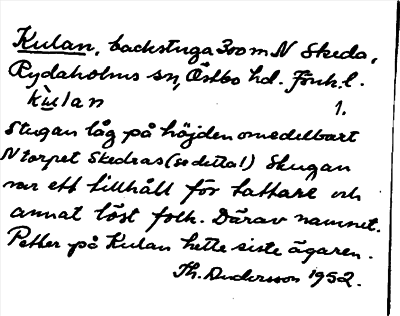 Kulan, backstuga 300 m N Skeda,
Rydaholms sn, Östbo hd. Jönk. l.
kùlan 1.
Stugan låg på höjden omedelbart
N torpet Skedras (se detta!) Stugan
var ett tillhåll för tattare och
annat löst folk. Därav namnet.
Petter på Kulan hette siste ägaren.
Th. Andersson 1952.